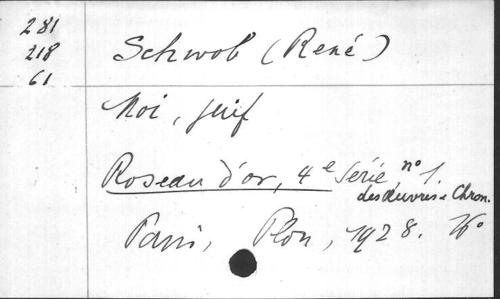 281
218
61
Schwob (René)
Moi, juif
Roseau d'or, 4e Série n° 1.
des Œuvres & Chron.
Paris, Plon, 1928.